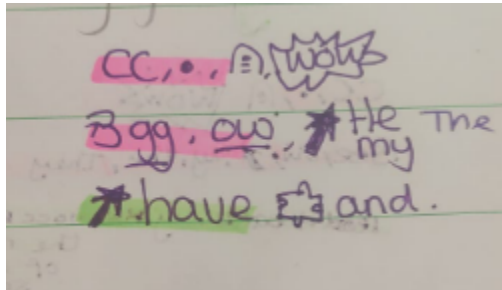 CC, •, , wow
gg, ow, He The
my
have and.